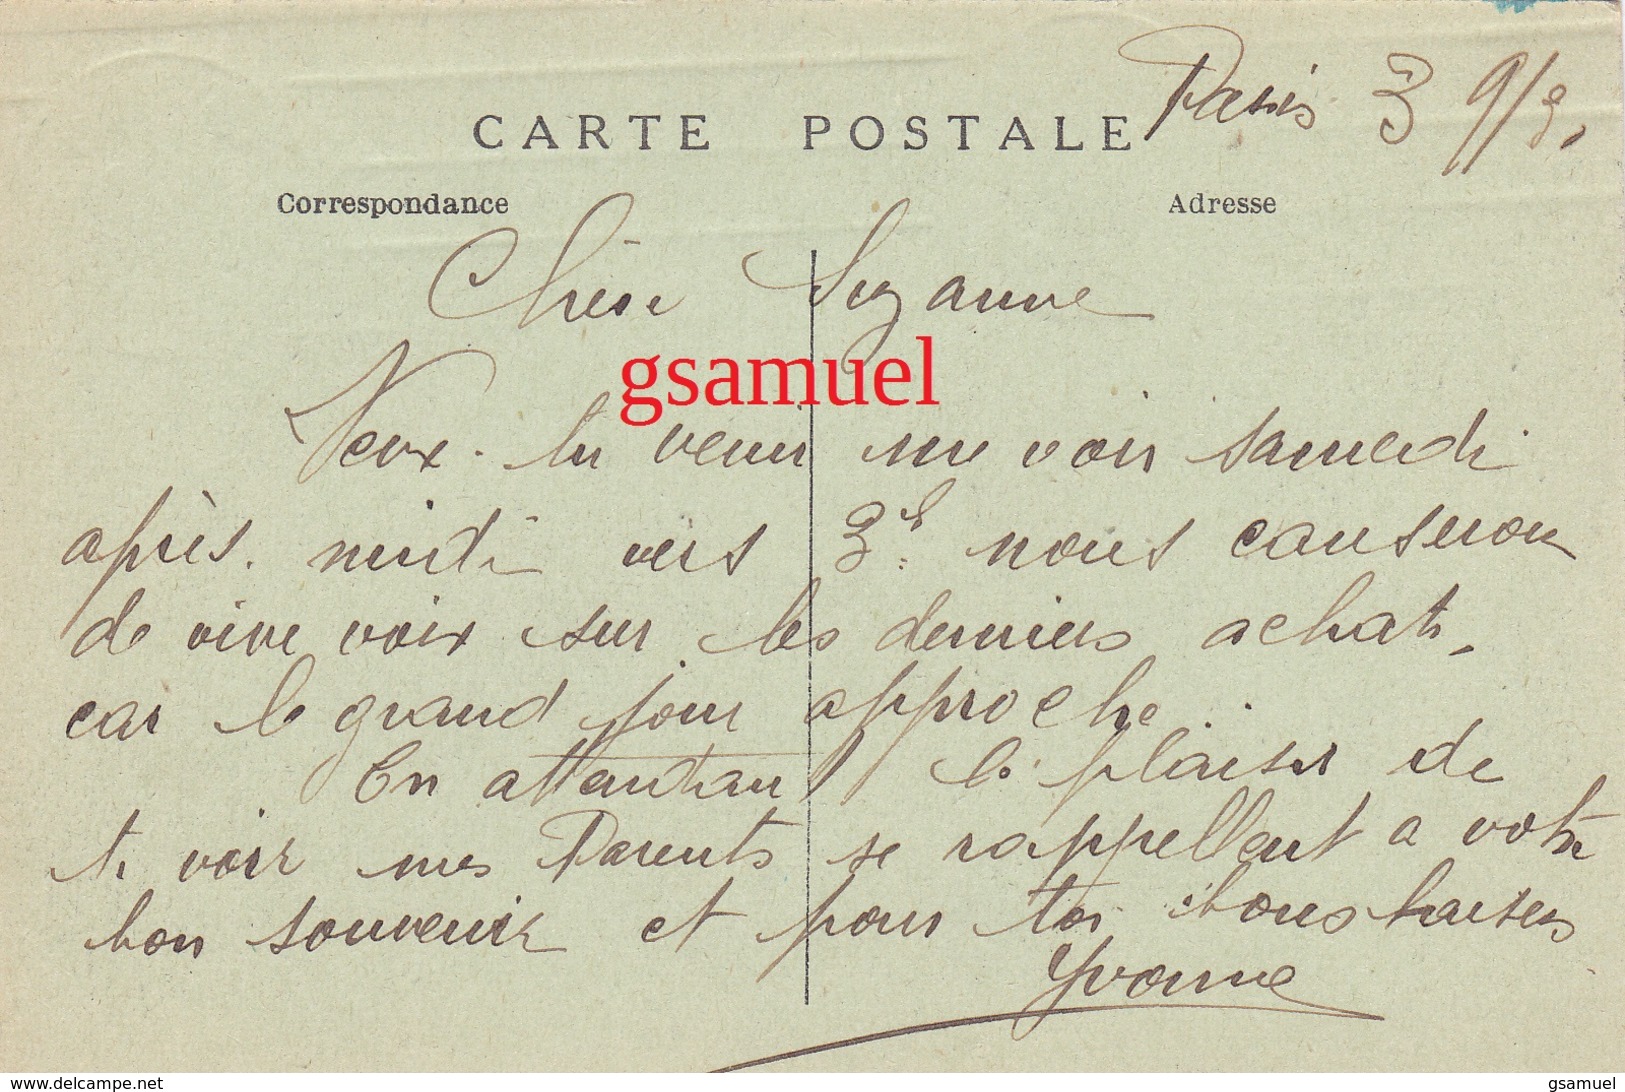 Paris 3 9/9.
CARTE POSTALE
Correspondance Adresse
Chère Suzanne
gsamuel
Veux-tu venir me voir samedi
après-midi vers 3h. nous causerons
de vive voix sur les derniers achats,
car le grand jour approche..
En attendant le plaisir de
te voir mes Parents se rappellent a votre
bon souvenir et pour toi bons baisers
Yvonne
www.delcampe.net gsamuel